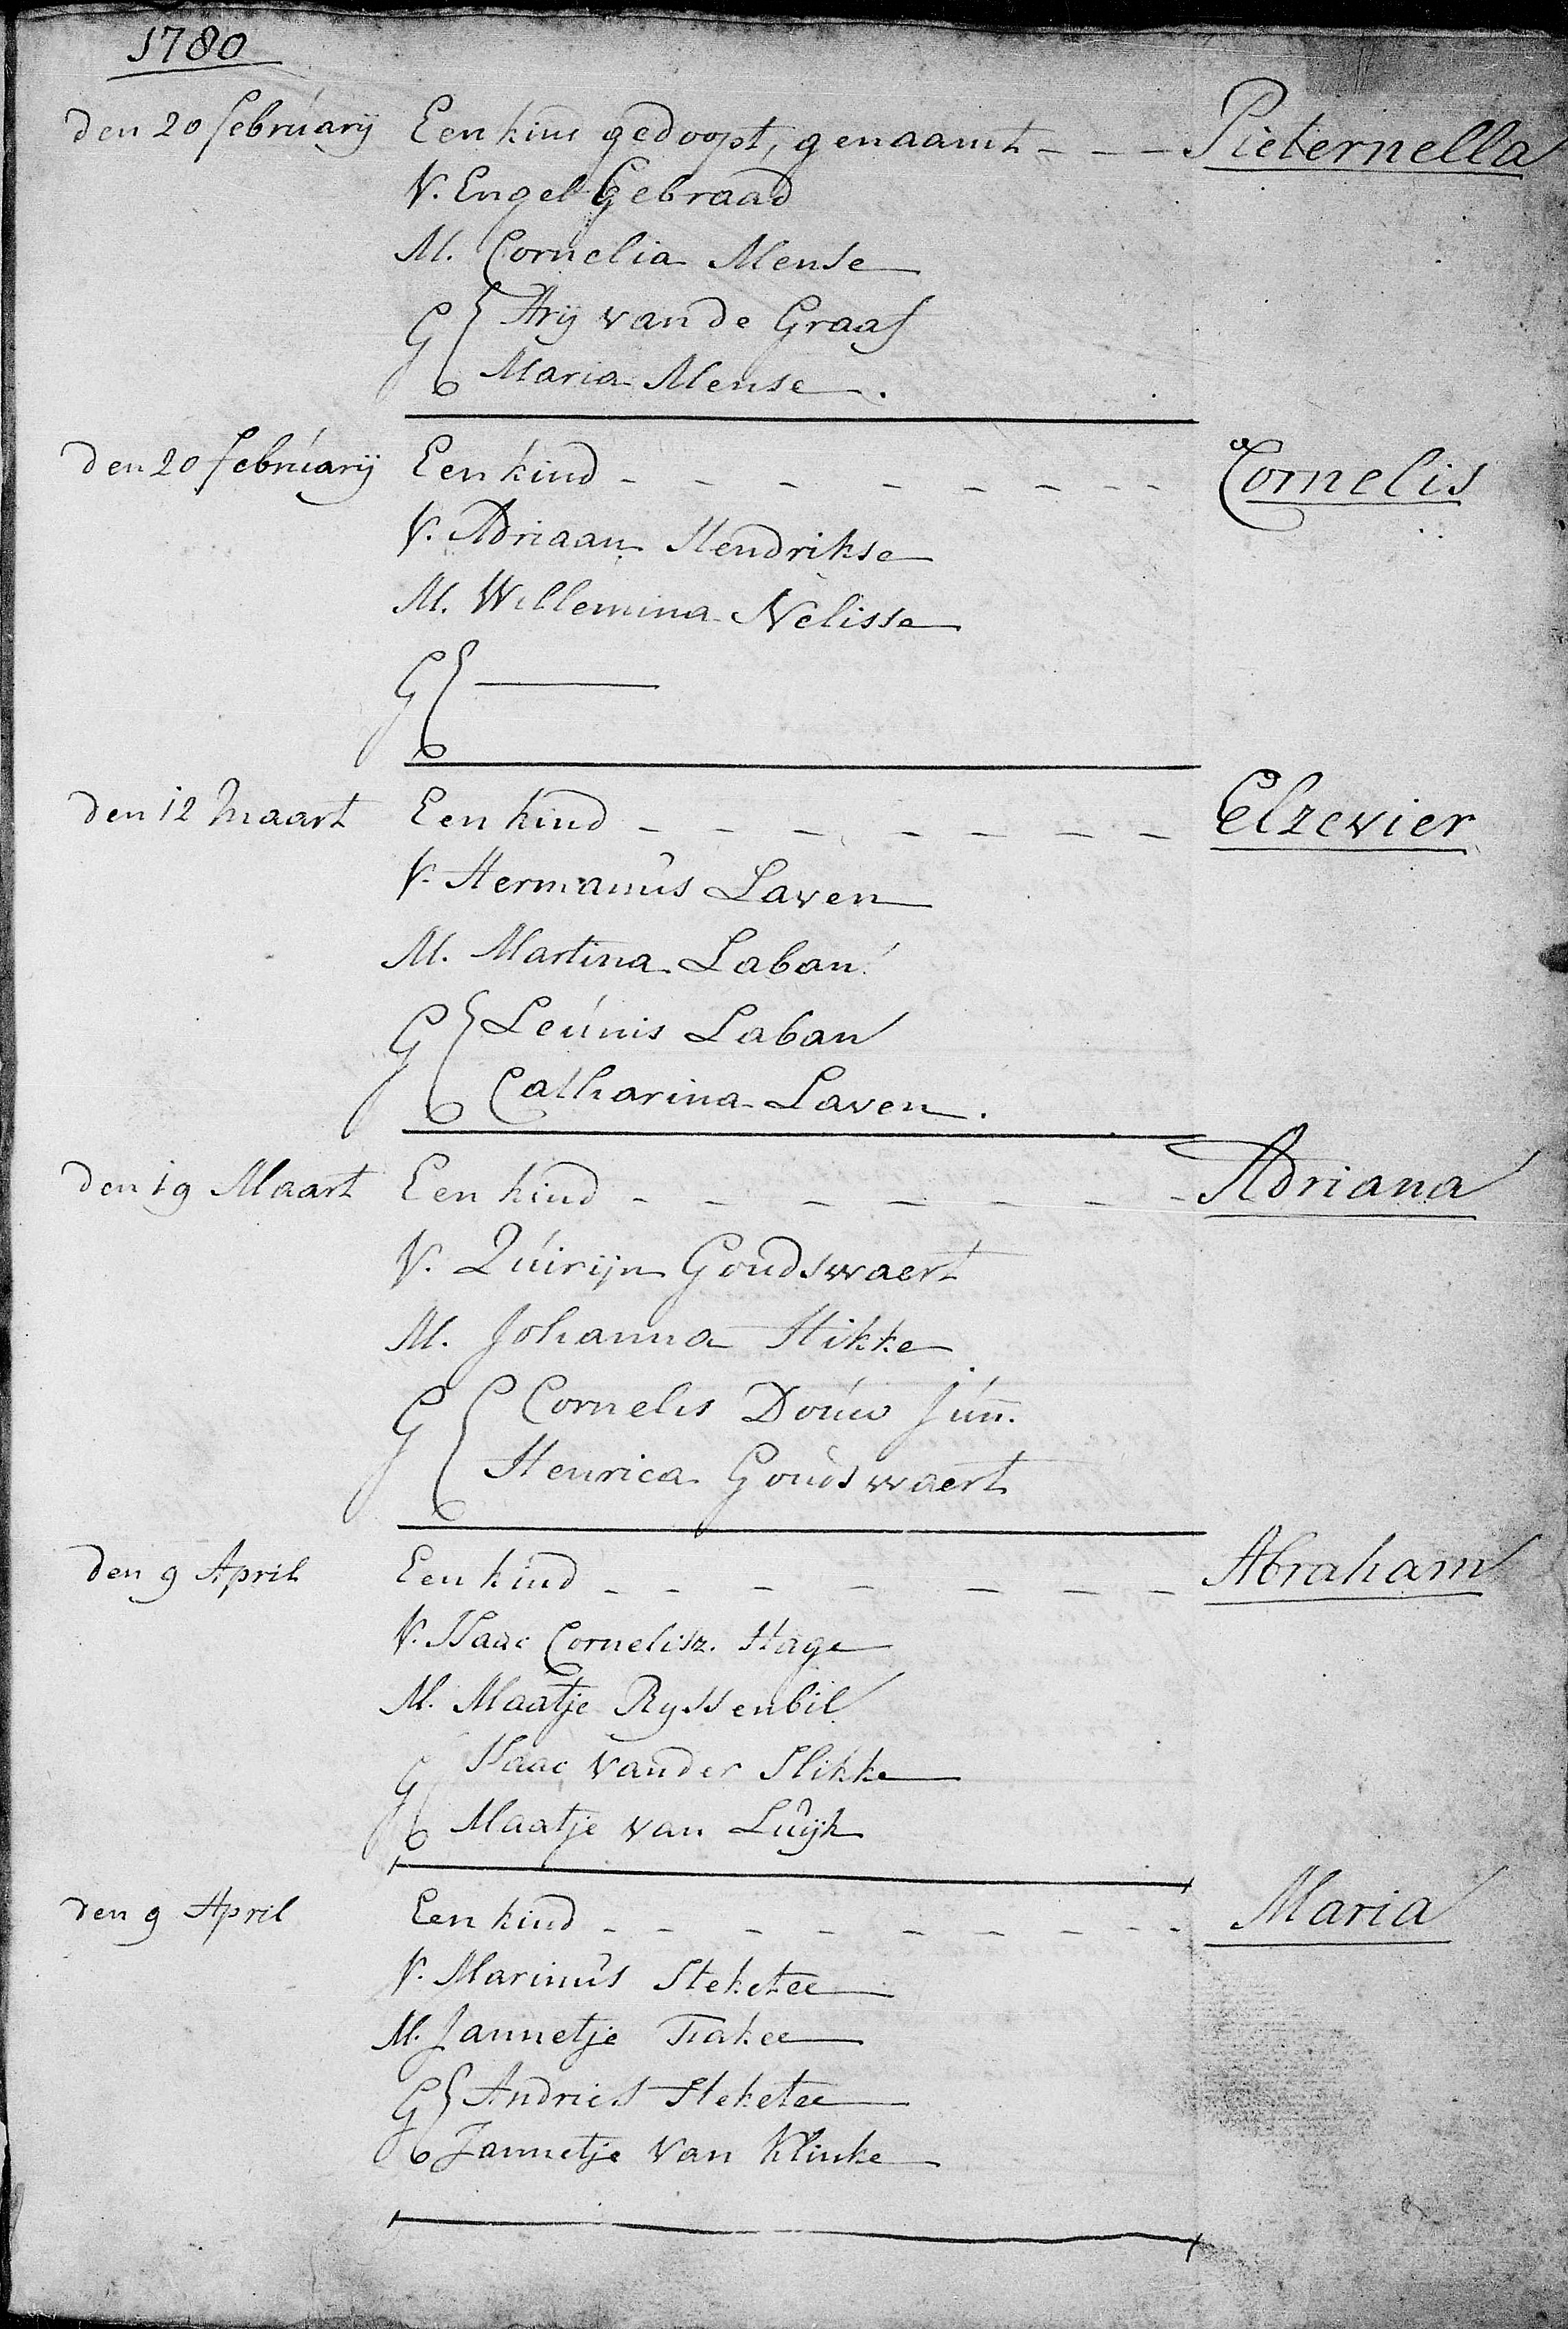 1780
den 20 februarij Een kint gedoopt, genaamt - - - Pieternella
V. Engel Gebraad
M. Cornelia Mense
G { Arij van de Graaf
Maria Mense.
den 20 februarij Een kind - - - - - - - - Cornelis
V. Adriaan Hendrikse
M. Willemina Nelisse
G { ———
den 12 Maart Een kind - - - - - - - Elzevier
V. Hermanus Laven
M. Martina Laban
G { Leunis Laban
Catharina Laven.
den 19 Maart Een kind - - - - - - - Adriana
V. Quirijn Goudswaert
M. Johanna Hikke
G { Cornelis Douw Jun.
Henrica Goudswaert
den 9 April Een kind - - - - - - - Abraham
V. Isaac Cornelisz. Hage
M. Maatje Ryssenbil
G { Isaac vander Slikke
Maatje van Luijk
den 9 April Een kind - - - - - - - - - Maria
V. Marinus Steketee
M. Jannetje
G { Andries Steketee
Jannetje van Klinke